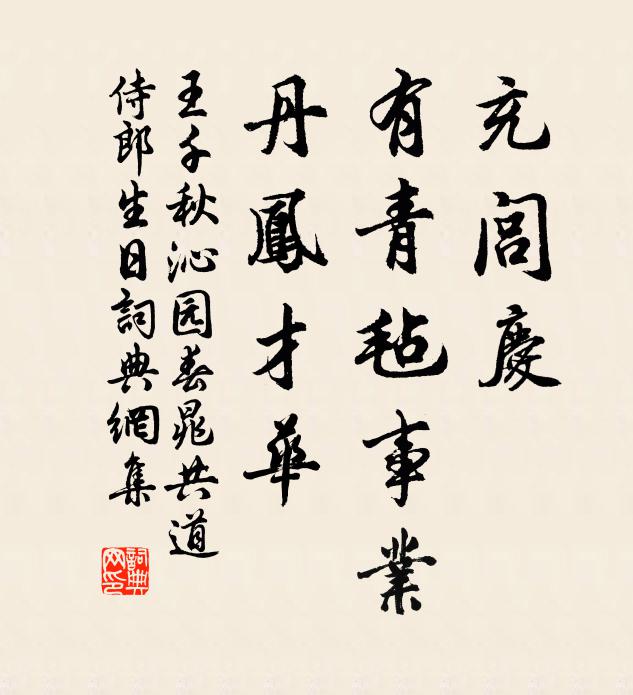 充閭慶
有青毡事業
丹鳳才華
王千秋沁园春晁共道
侍郎生日詞典網集
詞典网印